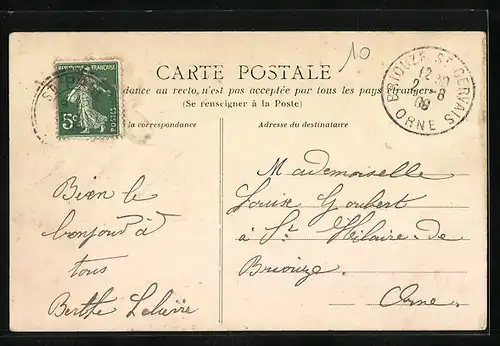 10
RÉPUBLIQUE FRANÇAISE
5c
POSTES
BRIOUZE ST GERVAIS
12 30
2 - 8
08
ORNE
CARTE POSTALE
dance au recto, n'est pas acceptée par tous les pays étrangers.
(Se renseigner à la Poste)
la correspondance
Adresse du destinataire
Bien le
bonjour à
tous
Berthe Lelièvre
Mademoiselle
Louise Goubert
à St Hilaire-de
Briouze
Orne